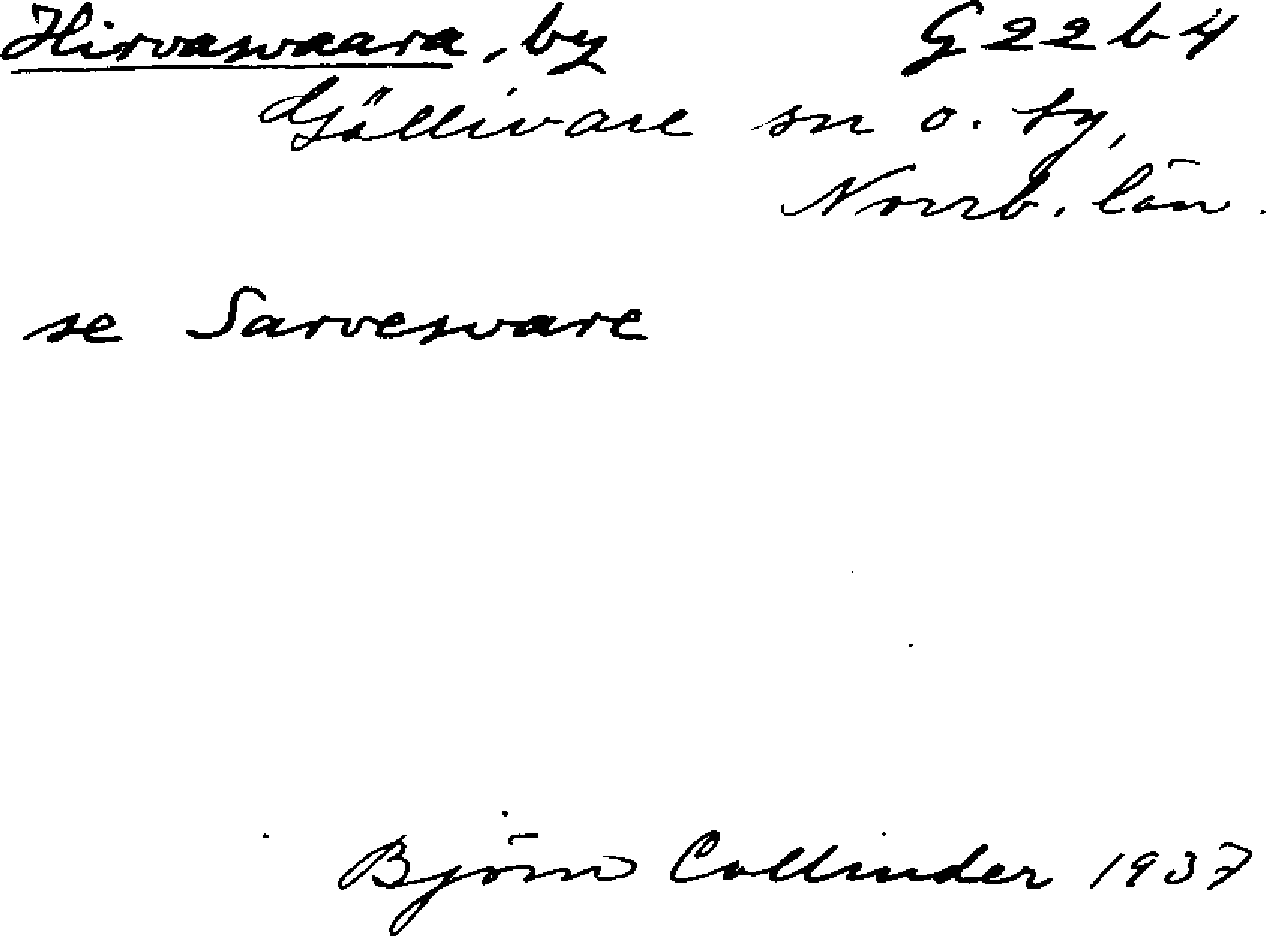 Hirvasvaara, by G22b4
Gällivare sn o. ty,
Norrb. län.
se Sarvesvare
Björn Collinder 1937